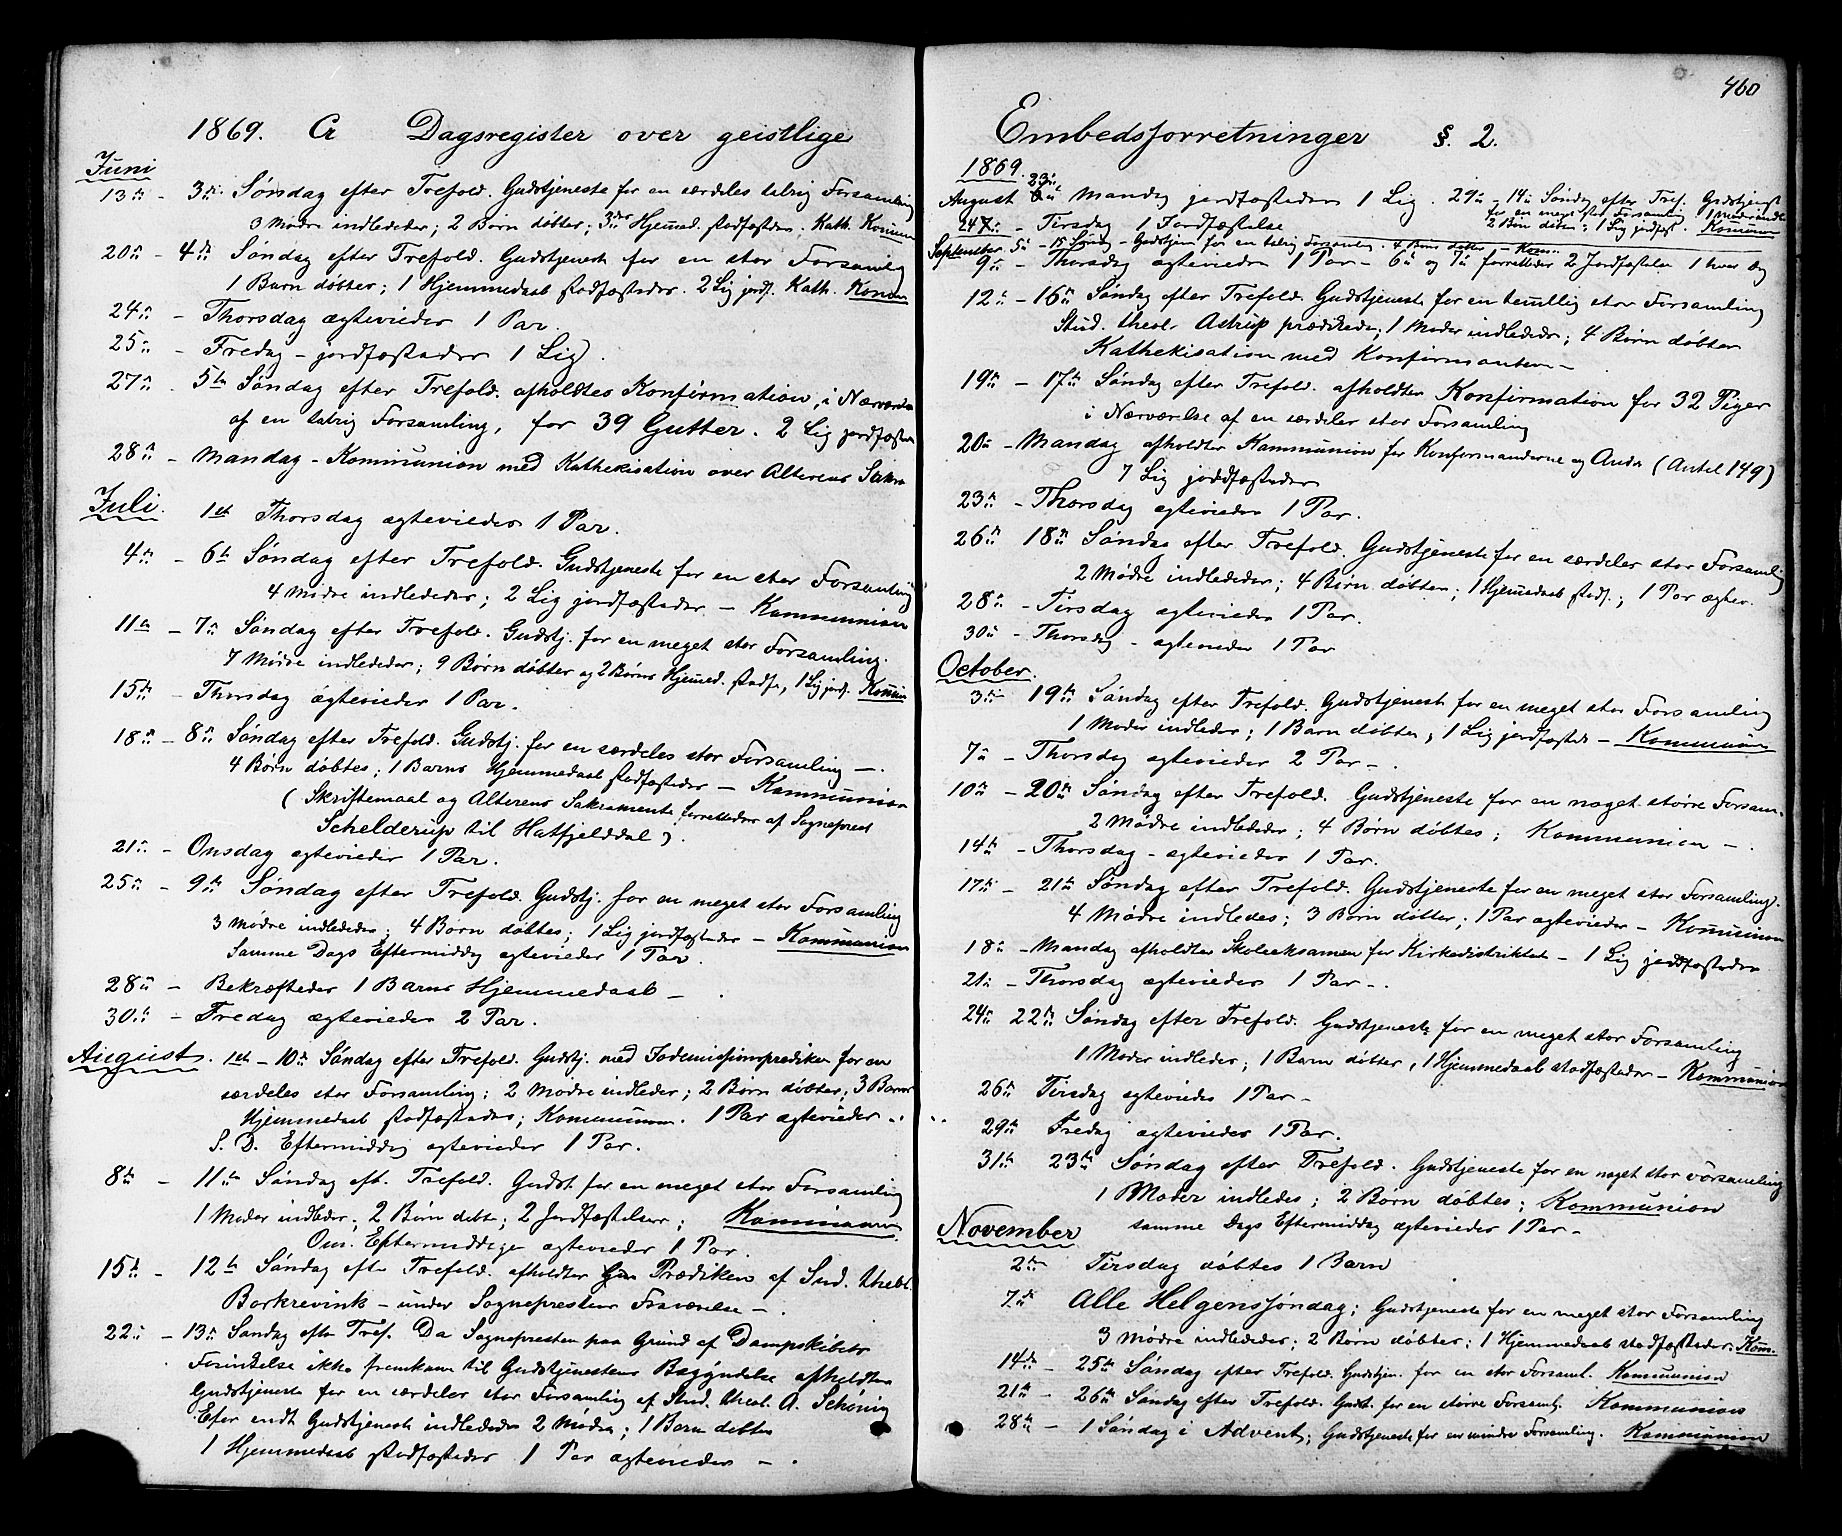 1869. A Dagsregister over geistlige
Juni
13de - 3die Søndag efter Trefold. Gudstjeneste for en særdeles talrig Forsamling
3 Mødre indlededes; 2 Børn døbtes; Hjemmed. stadfæstedes. Kath. Kommun
20de - 4de Søndag efter Trefold. Gudstjeneste for en stor Forsamling
1 Barn døbtes; 1 Hjemmedaab stadfæstedes. 2 Lig jordf. Kath. Kommun
24de - Thorsdag ægteviedes 1 Par.
25de - Fredag - jordfæstedes 1 Lig.
27de - 5te Søndag efter Trefold. afholdtes Konfirmation, i Nærværelse
af en talrig Forsamling, for 39 Gutter. 2 Lig jordfæstes
28de - Mandag - Kommunion med Kathekisation over Alterens Sakra
Juli. 1ste Thorsdag ægteviedes 1 Par.
4de - 6te Søndag efter Trefold. Gudstjeneste for en stor Forsamling
4 Mødre indlededes; 2 Lig jordfæstedes - Kommunion
11te - 7de Søndag efter Trefold. Gudstj. for en meget stor Forsamling.
7 Mødre indlededes; 9 Børn døbtes og 2 Børns Hjemmed. stadf., 1 Lig jordf. Kommun
15de - Thorsdag ægteviedes 1 Par.
18de - 8de Søndag efter Trefold. Gudstj. for en særdeles stor Forsamling -.
4 Børn døbtes; 1 Barns Hjemmedaab stadfæstedes - Kommunion
(Skriftemaal og Alterens Sakramente forrettedes af Sogneprest
Schelderup til Hatfjelddal).
21de - Onsdag ægteviedes 1 Par.
25de - 9de Søndag efter Trefold. Gudstj. for en meget stor Forsamling
3 Mødre indlededes; 4 Børn døbtes; 1 Lig jordfæstedes - Kommunion
Samme Dags Eftermiddag ægteviedes 1 Par.
28de - Bekræftedes 1 Barns Hjemmedaab -
30te - Fredag ægteviedes 2 Par.
August. 1ste - 10de Søndag efter Trefold. Gudstj. med for en
særdeles stor Forsamling; 2 Mødre indledes; 2 Børn døbtes; 3 Børns
Hjemmedaab stadfæstedes; Kommunion. 1 Par ægteviedes -.
S. D. Eftermiddag ægteviedes 1 Par.
8de - 11te Søndag eft. Trefold. Gudst. for en meget stor Forsamling
1 Moder indledes; 2 Børn døbt; 2 Jordfæstelser; Kommunion
Om Eftermiddage ægteviedes 1 Par.
15de - 12te Søndag eft. Trefold. afholdtes Prædiken af Stud. theol.
Borkrevink - under Sogneprestens Fraværelse -.
22de - 13de Søndag efter Tref. Da Sognepresten paa Grund af Dampskibets
Forsinkelse ikke fremkom til Gudstjenestens Begyndelse afholdtes
Gudstjeneste for en særdeles stor Forsamling af Stud. theol. A. Schøning
Efter endt Gudstjeneste indlededes 2 Mødre; 1 Barn døbtes
1 Hjemmedaab stadfæstedes 1 Par ægteviedes -.
460
Embedsforretninger §. 2.
1869.
August 23de Mandag jordfæstedes 1 Lig. 29de - 14de Søndag efter Tref. Gudstjenst
for en meget stor Forsamling
2 Børn døbtes; 1 Lig jordfæst. Kommunion
24de - Tirsdag 1 Jordfæstelse
September 5te - 15 Søndag - Gudstjen for en talrig Forsamling. 4 Børn døbtes - Kom:
9de - Thorsdag ægteviedes 1 Par - 6te og 7de forrettedes 2 Jordfæstelser 1 hver Dag
12te - 16de Søndag efter Trefold. Gudstjeneste for en temmelig stor Forsamling
Stud. theol. Astrup prædikede; 1 Moder indledede; 4 Børn døbtes
Kathekisation med Konfirmanterne -
19de - 17de Søndag efter Trefold. afholdtes Konfirmation for 32 Piger
i Nærværelse af en særdeles stor Forsamling
20de - Mandag afholdtes Kommunion for Konfirmanderne og Andre (Antal 149)
7 Lig jordfæstedes
23de - Thorsdag ægteviedes 1 Par.
26de 18de Søndag efter Trefold. Gudstjeneste for en særdeles stor Forsamling
2 Mødre indlededes; 4 Børn døbtes; 1 Hjemmedaab stadf.; 1 Par ægtev.
28de - Tirsdag ægteviedes 1 Par.
30te - Thorsdag - ægteviedes 1 Par
October.
3die 19de Søndag efter Trefold. Gudstjeneste for en meget stor Forsamling
1 Moder indledes; 1 Barn døbtes; 1 Lig jordfæstedes - Kommunion
7de - Thorsdag ægteviedes 2 Par -.
10de - 20de Søndag efter Trefold. Gudstjeneste for en noget større Forsam-
2 Mødre indlededes; 4 Børn døbtes; Kommunion -.
14de - Thorsdag - ægteviedes 1 Par.
17de - 21de Søndag efter Trefold. Gudstjeneste for en meget stor Forsamling.
4 Mødre indledes; 3 Børn døbtes; 1 Par ægteviedes - Kommunion
18de - Mandag afholdtes Skoleeksamen for Kirkedistriktet - 1 Lig jordfæstedes
21de - Thorsdag ægteviedes 1 Par -.
24de 22de Søndag efter Trefold. Gudstjeneste for en meget stor Forsamling
1 Moder indledes; 1 Barn døbtes, 1 Hjemmedaab stadfæstedes - Kommunion
26de Tirsdag ægteviedes 1 Par -
29de Fredag ægteviedes 1 Par.
31te 23de Søndag efter Trefold. Gudstjeneste for en noget stor Forsamling
1 Moder indledes; 2 Børn døbtes; Kommunion
samme Dags Eftermiddag ægteviedes 1 Par -
November
2den Tirsdag døbtes 1 Barn
7de Alle Helgenssøndag; Gudstjeneste for en meget stor Forsamling
3 Mødre indlededes; 2 Børn døbtes; 1 Hjemmedaab stadfæstedes. Kom.
14de - 25de Søndag efter Trefold. Gudstjen. for en stor Forsaml. Kommunion
21de - 26de Søndag efter Trefold. Gudst. for en større Forsaml. Kommunion
28de - 1 Søndag i Advent; Gudstjeneste for en mindre Forsamling. Kommunion